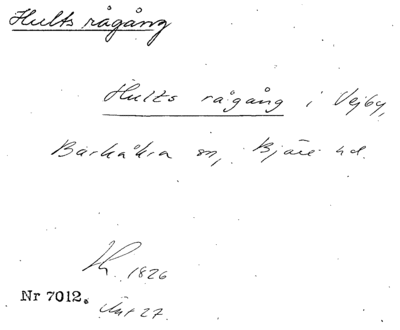 Hults rågång
Hults rågång i Vejby,
Barkåkra sn, Bjäre hd.
1826
Nr 7012.
27